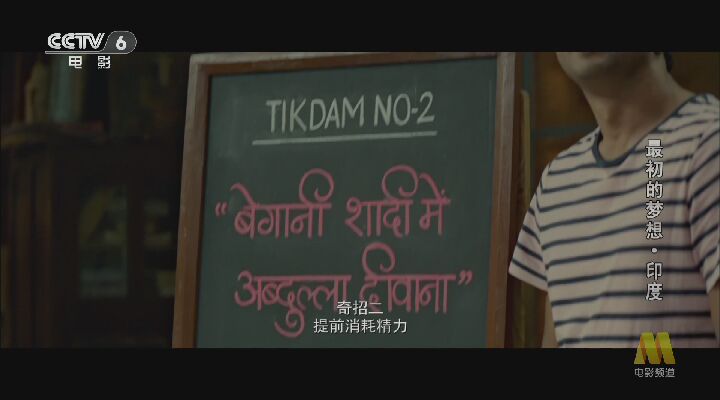 CCTV 6
电影
TIKDAM NO-2
“बेगानी शादी में
अब्दुल्ला दीवाना”
奇招二
提前消耗精力
最初的梦想·印度
电影频道